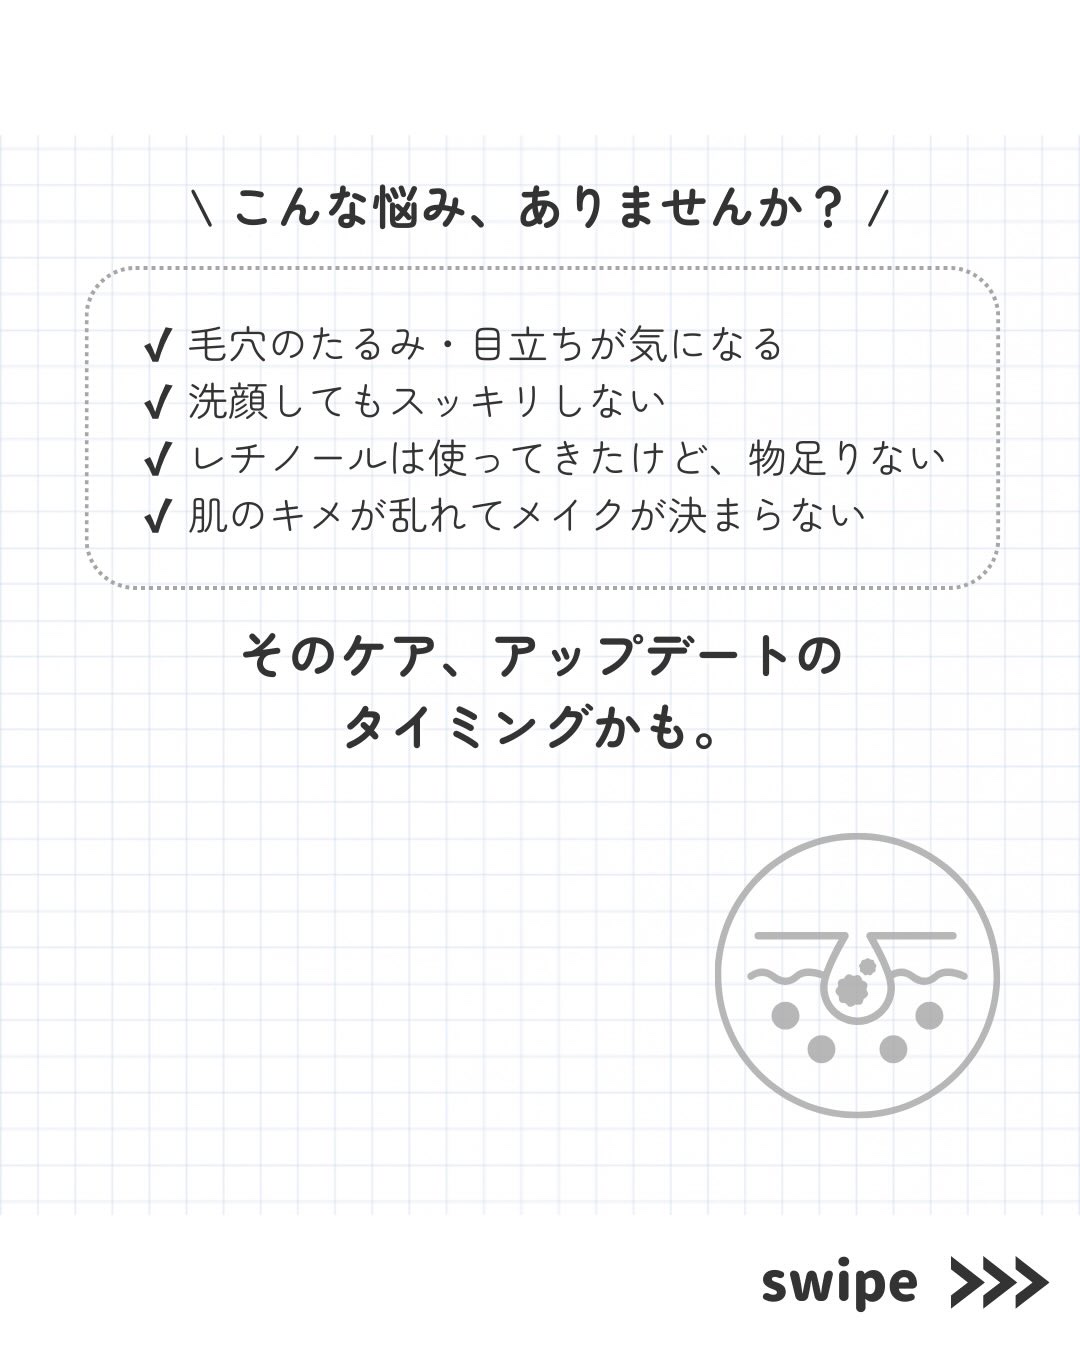 \ こんな悩み、ありませんか？ /
✓ 毛穴のたるみ・目立ちが気になる
✓ 洗顔してもスッキリしない
✓ レチノールは使ってきたけど、物足りない
✓ 肌のキメが乱れてメイクが決まらない
そのケア、アップデートの
タイミングかも。
swipe